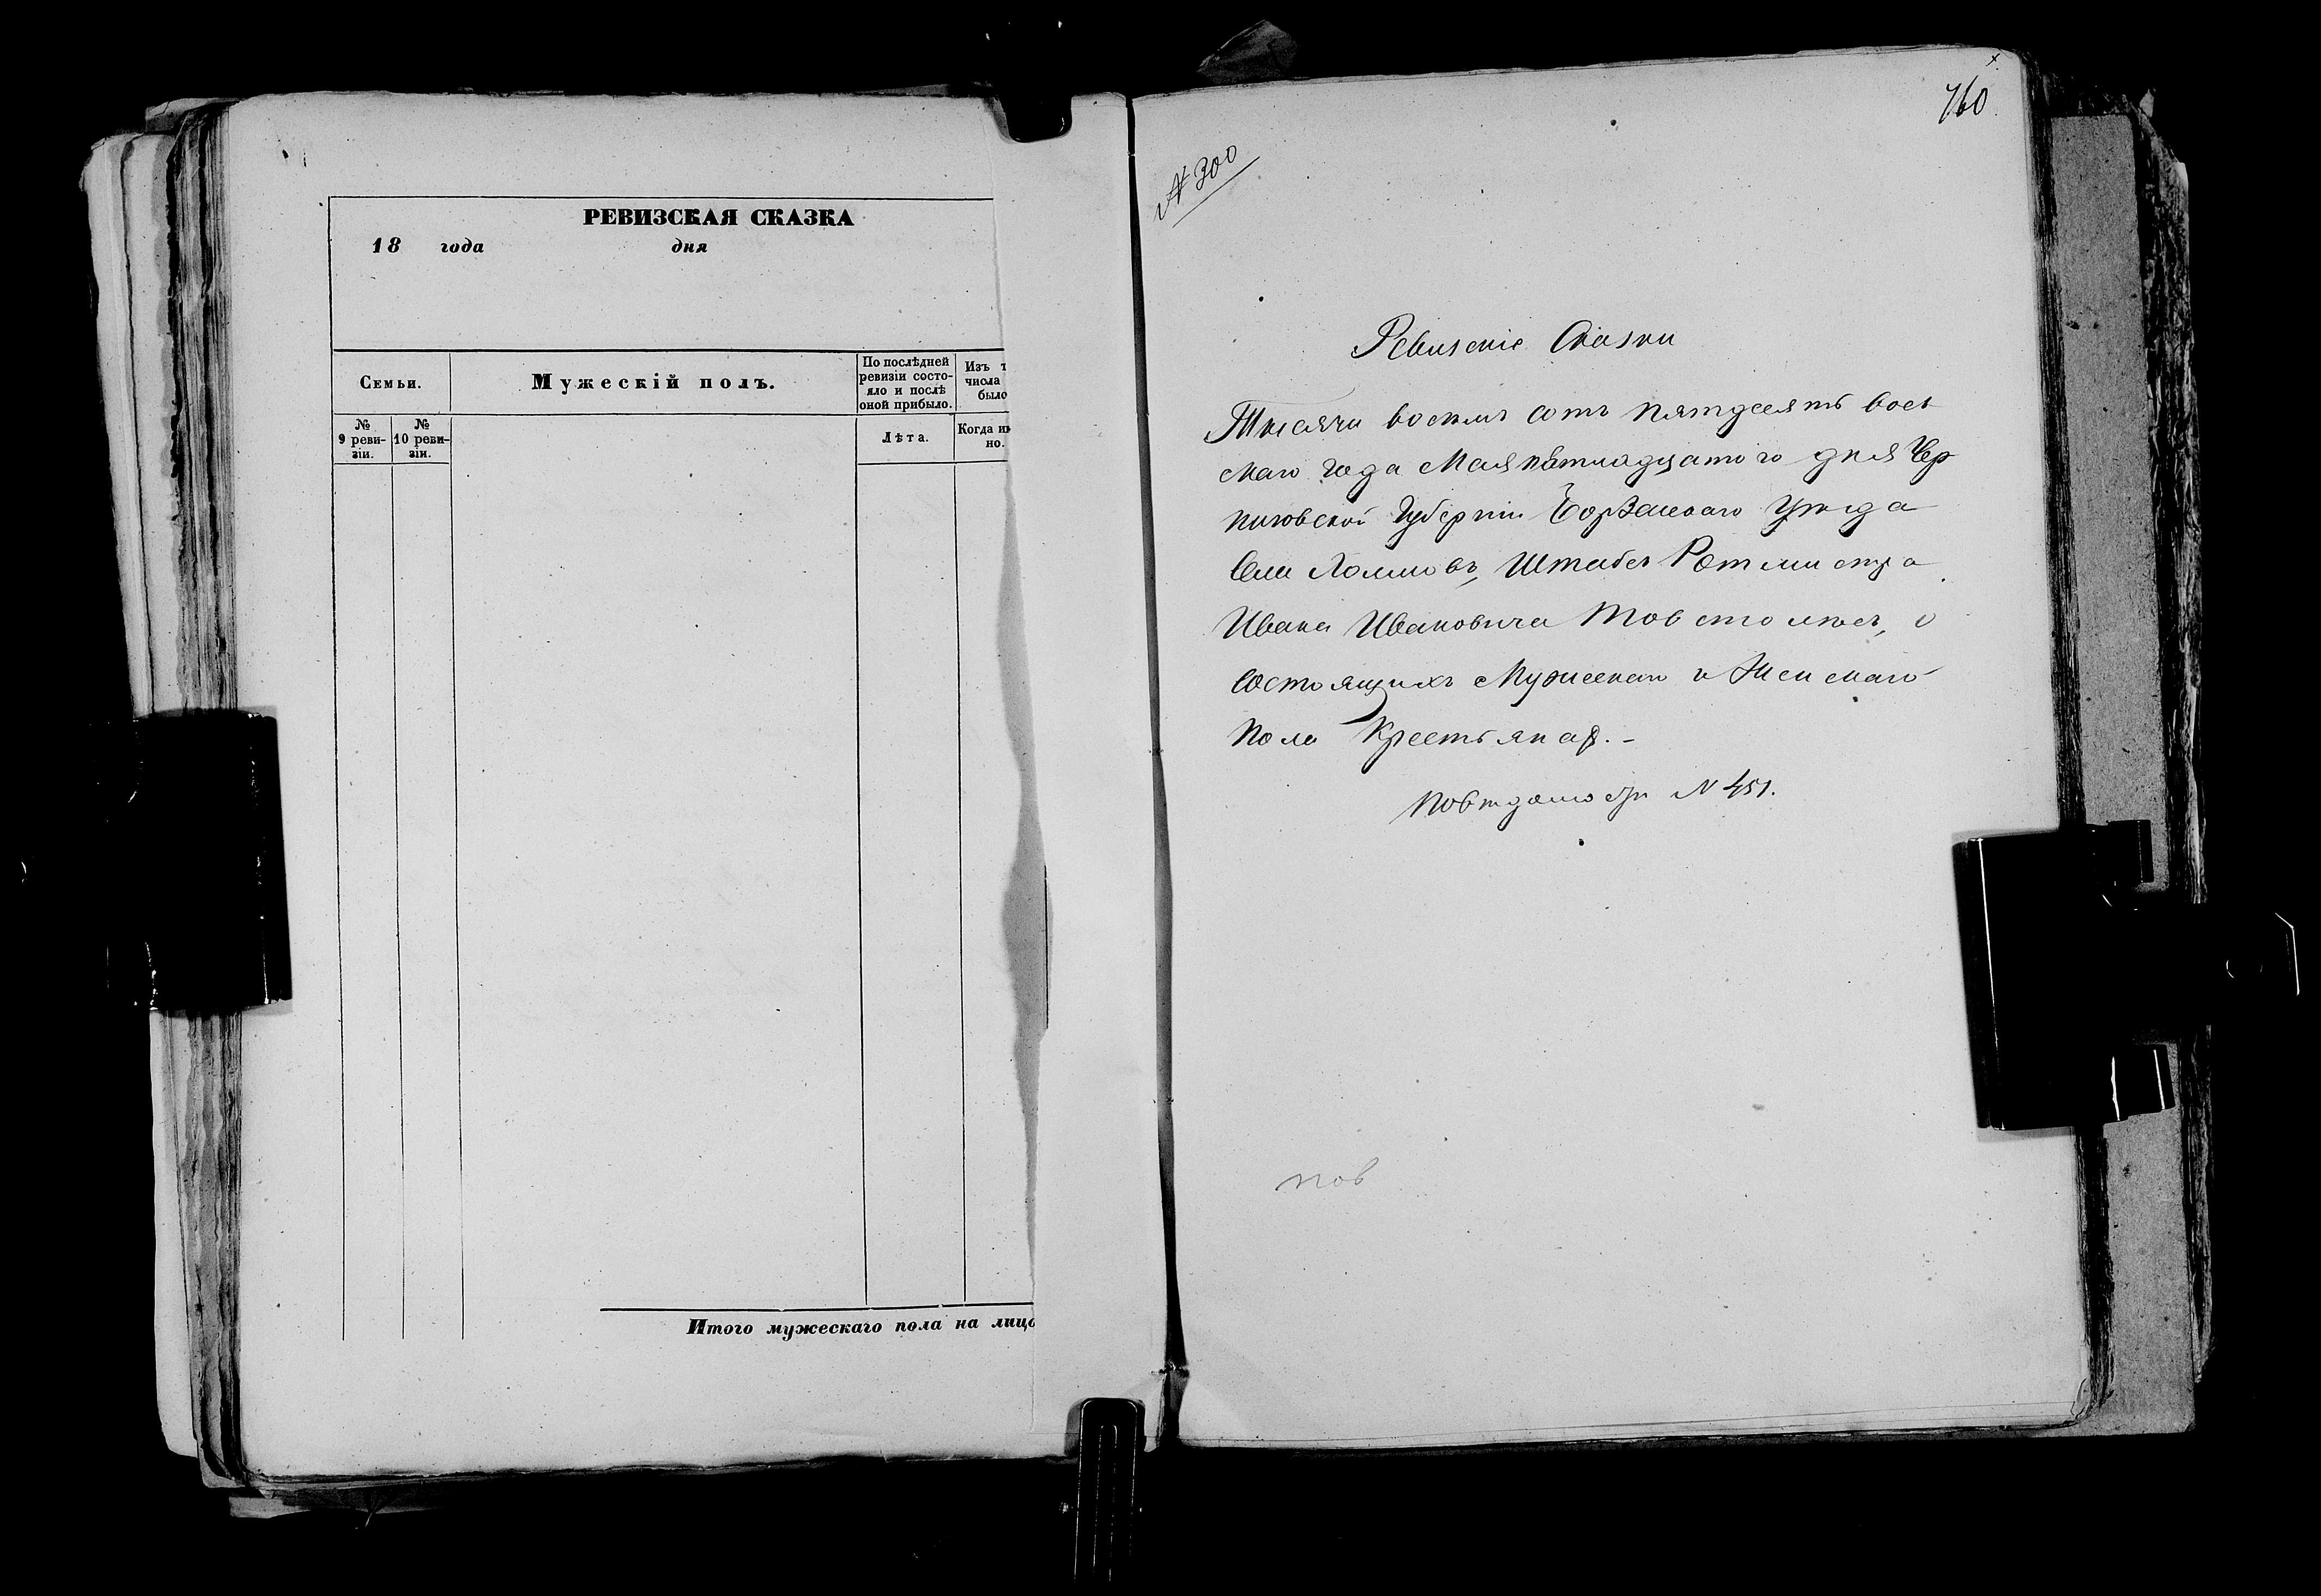 РЕВИЗСКАЯ СКАЗКА
18 года дня
Семьи.
Мужескій полъ.
По послѣдней
ревизіи состо-
яло и послѣ
оной прибыло.
Изъ т
числа
было
№
9 реви-
зіи.
№
10 реви-
зіи.
Лѣта.
Когда им
но.
Итого мужескаго пола на лицо
760
№ 300
Ревизскіе Сказки
Тысячи восемь сотъ пятдесятъ вось
маго года Мая пятнадцатого дня Чер
ниговской Губерніи Борзенского Уѣзда
Штабсъ Ротмистра
Ивана Ивановича Товстолѣсъ, о
состоящихъ Мужескаго и Женскаго
Пола Крестьянах.-
№ 451.
пов